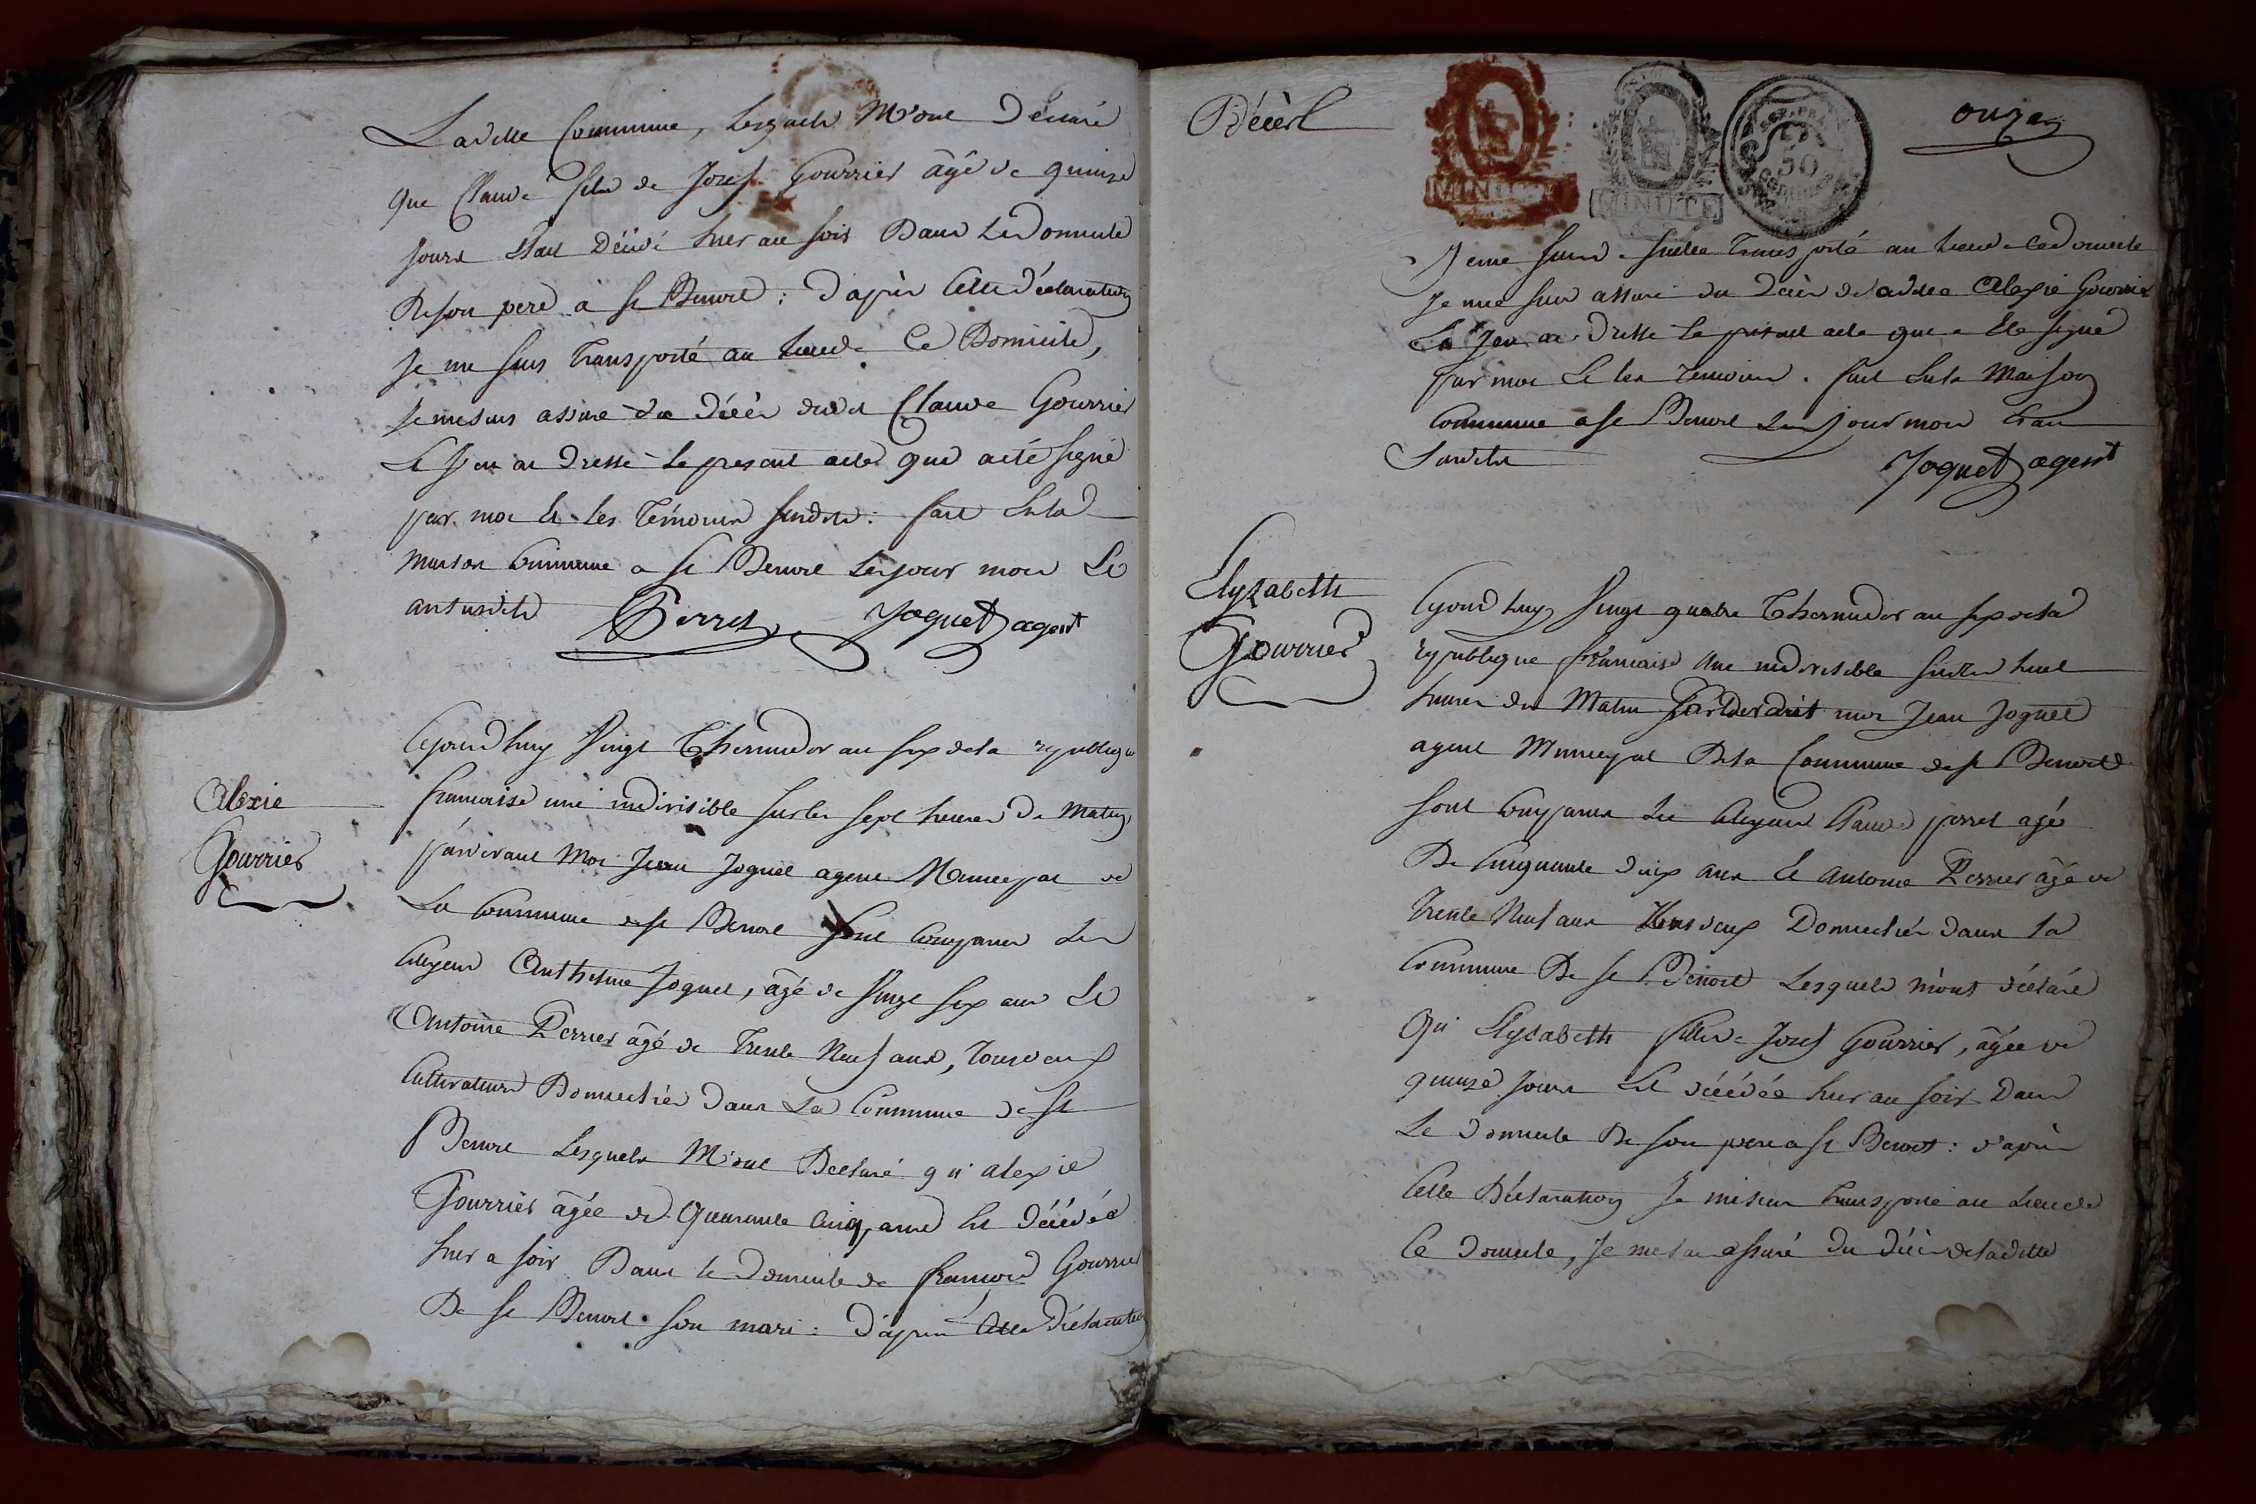 Laditte Commune, Lesquels M'ont Déclaré
que Claude fils de Josef Gourrier âgé de quinze
jours Etait Décédé hier au soir Dans Le Domicile
De son pere à St Benoit : d'après Cette déclaration
Je me suis Transporté au Lieu de Ce Domicile,
Je me suis assuré du Décès dudit Claude Gourrier
Et J'en ai Dressé Le present acte que a été signé
par moi et les Témoins susdits : fait En la
Maison Commune a St Benoit Les jour mois Et
an susdits
Perret Joguet agent
Alexie
Gourrier
Cejourd huy Vingt Thermidor an six de la republique
francaise une indivisible sur les sept heures du Matin
pardevant Moi Jean Joguet agent Municipal de
La Commune de St Benoit sont Comparus Les
Citoyens Anthelme Joguet, âgé de Vingt six ans Et
Antoine Perrier âgé de Trente Neuf ans, Tous deux
Cultivateurs Domiciliés dans La Commune de St
Benoit Lesquels M'ont Declaré qu'alexie
Gourrier âgée de Quarante Cinq ans Est Décédée
hier a soir Dans le Domicile de francois Gourrier
De St Benoit son mari : d'après Cette Déclaration
Décès
MINUTE
MINUTE
REP. FRA.
50
CENTIMES
onze
Je me suis Transporté au Lieu de Ce domicile
Je me suis assuré du Décès de ladite Alexie Gourrier
Et J'en ai Dressé Le present acte que a été signé
par moi Et les Temoins. fait En la Maison
Commune a St Benoit Les Jour mois Et an
Susdits
Joguet agent
Elyzabeth
Gourrier
Cejourd huy Vingt quatre Thermidor an six de la
republique francaise une indivisible sur les huit
heures du Matin Pardevant moi Jean Joguet
agent Municipal De la Commune de St Benoit
sont Comparus Les Citoyens Claude perret agé
De Cinquante dix ans Et antoine Perrier âgé de
Trente Neuf ans Tous deux Domiciliés dans la
Commune De St Benoit Lesquels m'ont déclaré
Qu'Elysabeth fille de Josef Gourrier, âgée de
quinze Jours Est décédée hier au soir Dans
Le domicile De son pere a St Benoit : d'après
Cette Déclaration Je me suis Transporté au Lieu de
Ce domicile, Je me suis assuré du décès de laditte